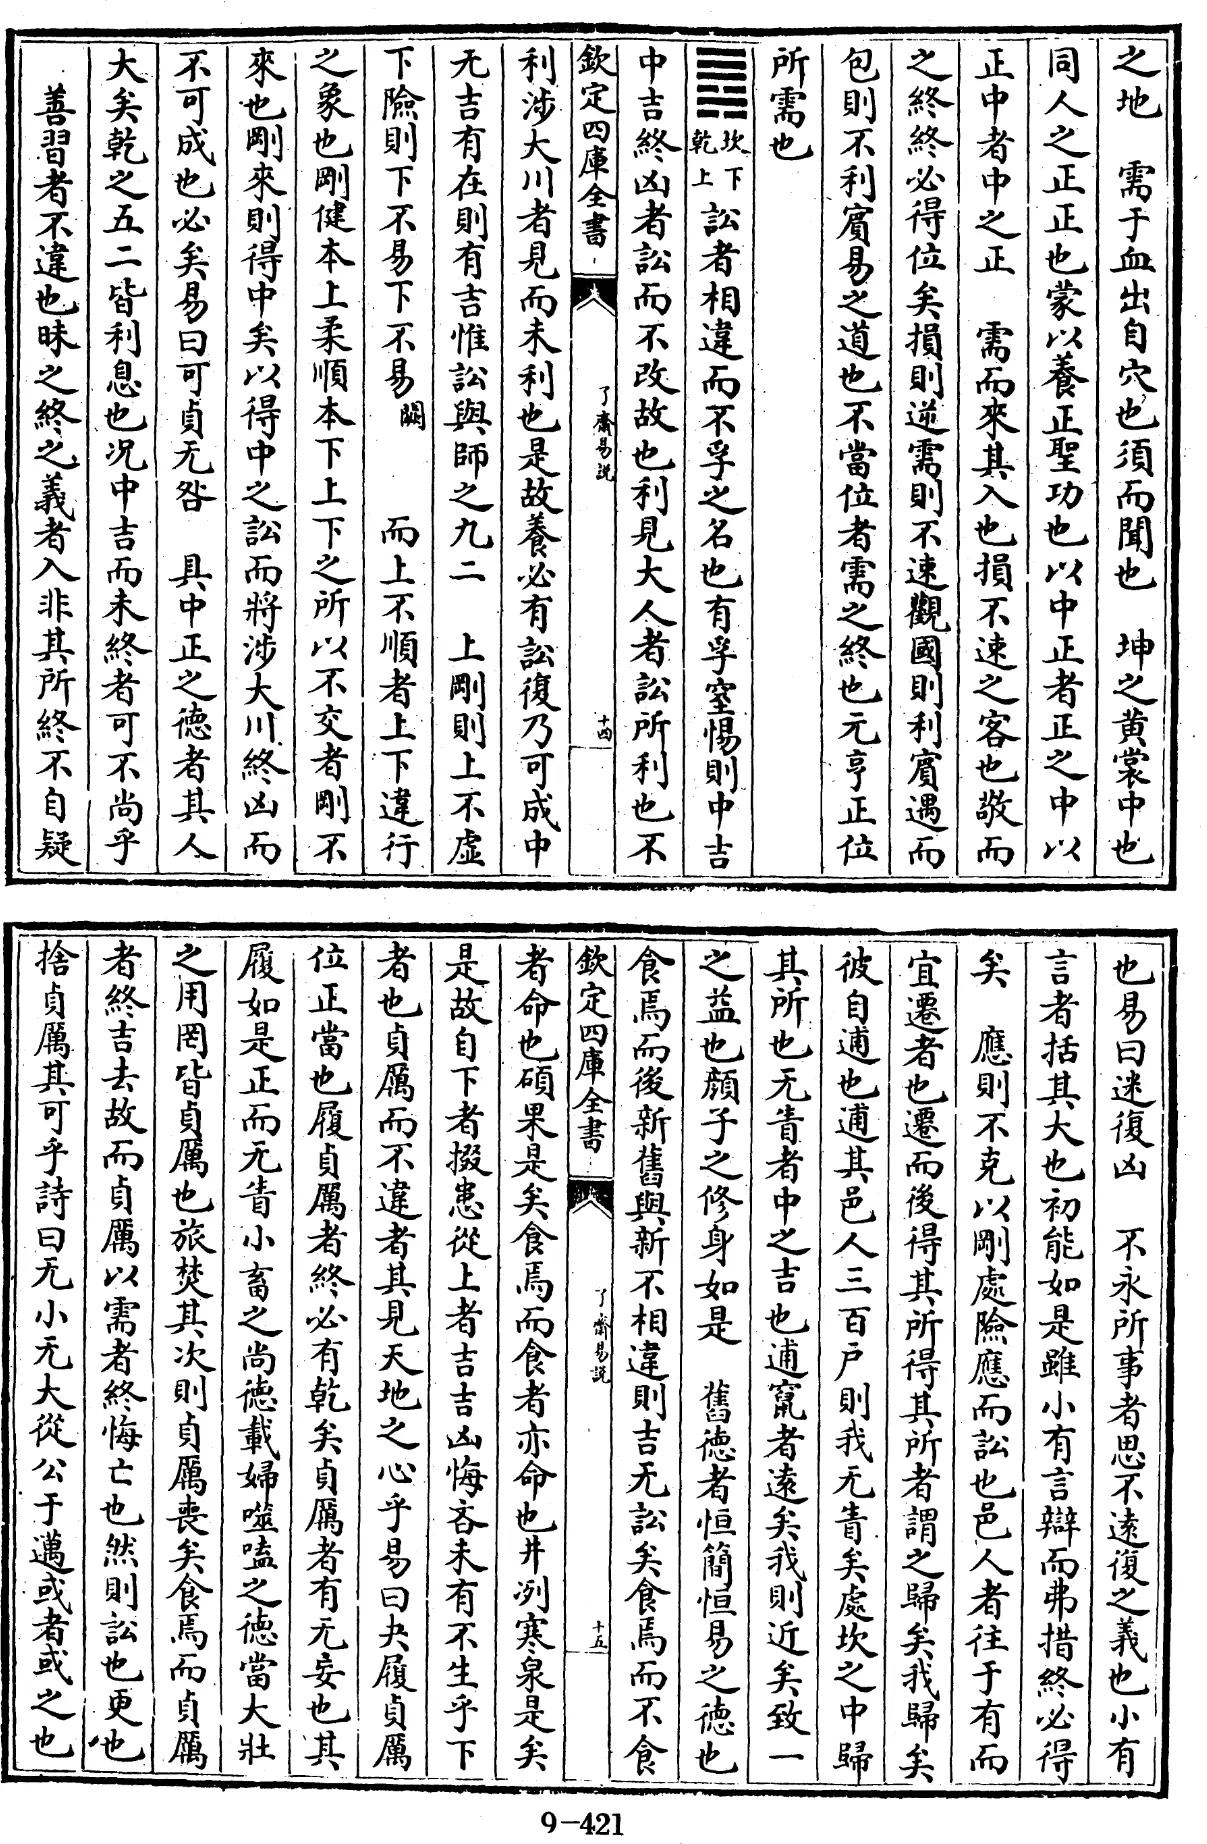 之地　需于血出自穴也須而聞也　坤之黄裳中也
同人之正正也蒙以養正聖功也以中正者正之中以
正中者中之正　需而來其入也損不速之客也敬而
之終終必得位矣損則逆需則不速觀國則利賓遇而
包則不利賓易之道也不當位者需之終也元亨正位
所需也
䷅乾上坎下訟者相違而不孚之名也有孚窒惕則中吉
中吉終凶者訟而不改故也利見大人者訟所利也不
欽定四庫全書　了齋易說　十四
利涉大川者見而未利也是故養必有訟復乃可成中
无吉有在則有吉惟訟與師之九二　上剛則上不虛
下險則下不易下不易闕　而上不順者上下違行
之象也剛健本上柔順本下上下之所以不交者剛不
來也剛來則得中矣以得中之訟而將涉大川終凶而
不可成也必矣易曰可貞无咎　具中正之德者其人
大矣乾之五二皆利息也況中吉而未終者可不尚乎
善習者不違也昧之終之義者入非其所終不自疑
也易曰迷復凶　不永所事者思不遠復之義也小有
言者括其大也初能如是雖小有言辯而弗措終必得
矣　應則不克以剛處險應而訟也邑人者往于有而
宜遷者也遷而後得其所得其所者謂之歸矣我歸矣
彼自逋也逋其邑人三百戶則我无眚矣處坎之中歸
其所也无眚者中之吉也逋竄者遠矣我則近矣致一
之益也顔子之修身如是　舊德者恒簡恒易之德也
食焉而後新舊與新不相違則吉无訟矣食焉而不食
欽定四庫全書　了齋易說　十五
者命也碩果是矣食焉而食者亦命也井冽寒泉是矣
是故自下者掇患從上者吉吉凶悔吝未有不生乎下
者也貞厲而不違者其見天地之心乎易曰夬履貞厲
位正當也履貞厲者終必有乾矣貞厲者有无妄也其
履如是正而无眚小畜之尚德載婦噬嗑之德當大壯
之用罔皆貞厲也旅焚其次則貞厲喪矣食焉而貞厲
者終吉去故而貞厲以需者終悔亡也然則訟也更也
捨貞厲其可乎詩曰无小无大從公于邁或者或之也
9-421